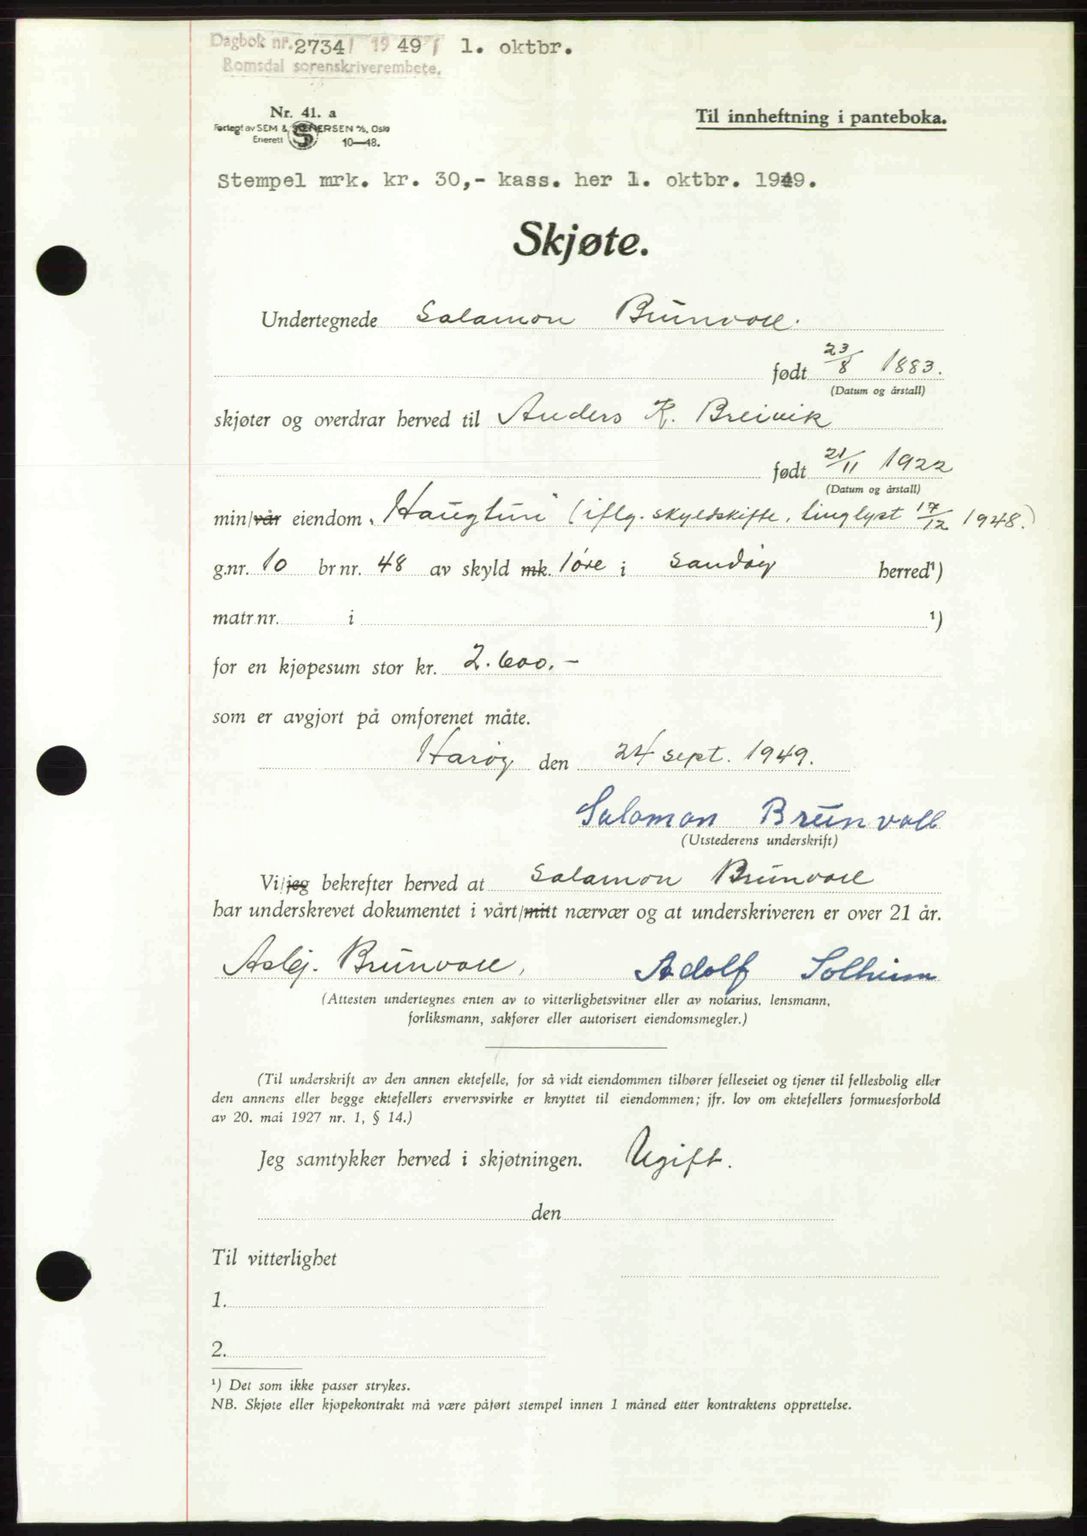 Dagbok nr. 2734/ 1949/ 1. oktbr.
Romsdal sorenskriverembete.
Nr. 41. a
Forlagt av SEM & STENERSEN A/S, Oslo
Enerett 10—48.
Til innheftning i panteboka.
Stempel mrk. kr. 30,- kass. her 1. oktbr. 1949.
Skjøte.
Undertegnede Salamon Brunvoll.
født 23/8 1883.
(Datum og årstall)
skjøter og overdrar herved til Anders K. Breivik
født 21/11 1922
(Datum og årstall)
min/vår eiendom „Haugtun" (iflg. skyldskifte, tinglyst 17/12 1948.)
g.nr. 10 br nr. 48 av skyld mk. 1 øre i Sandøy herred¹)
matr.nr. i ¹)
for en kjøpesum stor kr. 2.600.-
som er avgjort på omforenet måte.
Harøy den 24 sept. 1949.
Salamon Brunvoll
(Utstederens underskrift)
Vi/jeg bekrefter herved at Salamon Brunvoll
har underskrevet dokumentet i vårt/mitt nærvær og at underskriveren er over 21 år.
Asbj. Brunvoll, Adolf Solheim
(Attesten undertegnes enten av to vitterlighetsvitner eller av notarius, lensmann,
forliksmann, sakfører eller autorisert eiendomsmegler.)
(Til underskrift av den annen ektefelle, for så vidt eiendommen tilhører felleseiet og tjener til fellesbolig eller
den annens eller begge ektefellers ervervsvirke er knyttet til eiendommen; jfr. lov om ektefellers formuesforhold
av 20. mai 1927 nr. 1, § 14.)
Jeg samtykker herved i skjøtningen. Ugift.
den
Til vitterlighet
1.
2.
¹) Det som ikke passer strykes.
NB. Skjøte eller kjøpekontrakt må være påført stempel innen 1 måned etter kontraktens opprettelse.